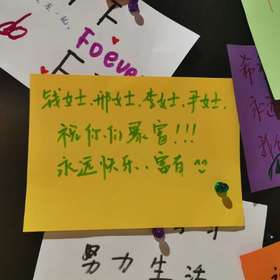 Foever
钱女士.邢女士.李女士.尹女士.
祝你们暴富!!!
永远快乐..富有
努力生活